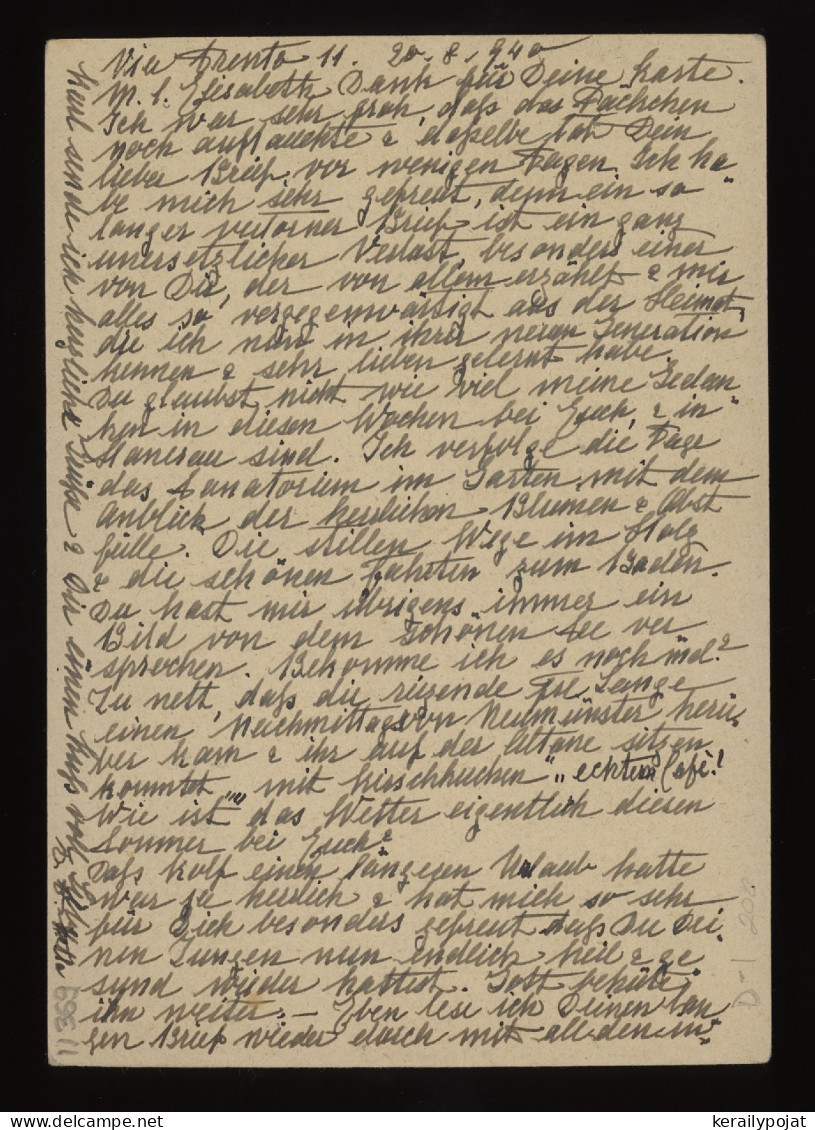 Via Trento 11. 20.8.940
M. l. Elisabeth Dank für Deine Karte.
Ich war sehr froh, daß das Päckchen
noch auftauchte & dasselbe tat Dein
lieber Brief vor wenigen Tagen. Ich ha
be mich sehr gefreut, denn ein so
langer verlorner Brief ist ein ganz
unersetzlicher Verlust, besonders einer
von Dir, der von allem erzählt & mir
alles so vergegenwärtigt aus der Heimat,
die ich nun in ihrer neuen Generation
kennen & sehr lieben gelernt habe.
Du glaubst nicht wie viel meine Gedan
ken in diesen Wochen bei Euch & in
Hanerau sind. Ich verfolge die Tage
das Sanatorium im Garten mit dem
Anblick der herrlichen Blumen & Obst
fülle. Die stillen Wege im Holz
& die schönen Fahrten zum Baden.
Du hast mir übrigens immer ein
Bild von dem schönen See ver
sprochen. Bekomme ich es noch mal?
Zu nett, daß die reizende Lange
einen Nachmittag von Neumünster herü
ber kam & ihr auf der Altane sitzen
konntet mit Kirschkuchen & „echtem Cafè"!
Wie ist das Wetter eigentlich diesen
Sommer bei Euch?
Daß Rolf einen längeren Urlaub hatte
war ja herrlich & hat mich so sehr
für Dich besonders gefreut daß Du Dei
nen Jungen nun endlich heil & ge
sund wieder hattest. Gott behüte
ihn weiter. – Eben lese ich Deinen lan
gen Brief wieder durch mit all den in
Karl sende ich herzliche Grüße & Dir einen Kuß von
11369
D-1 200
kerailypojat
www.delcampe.net